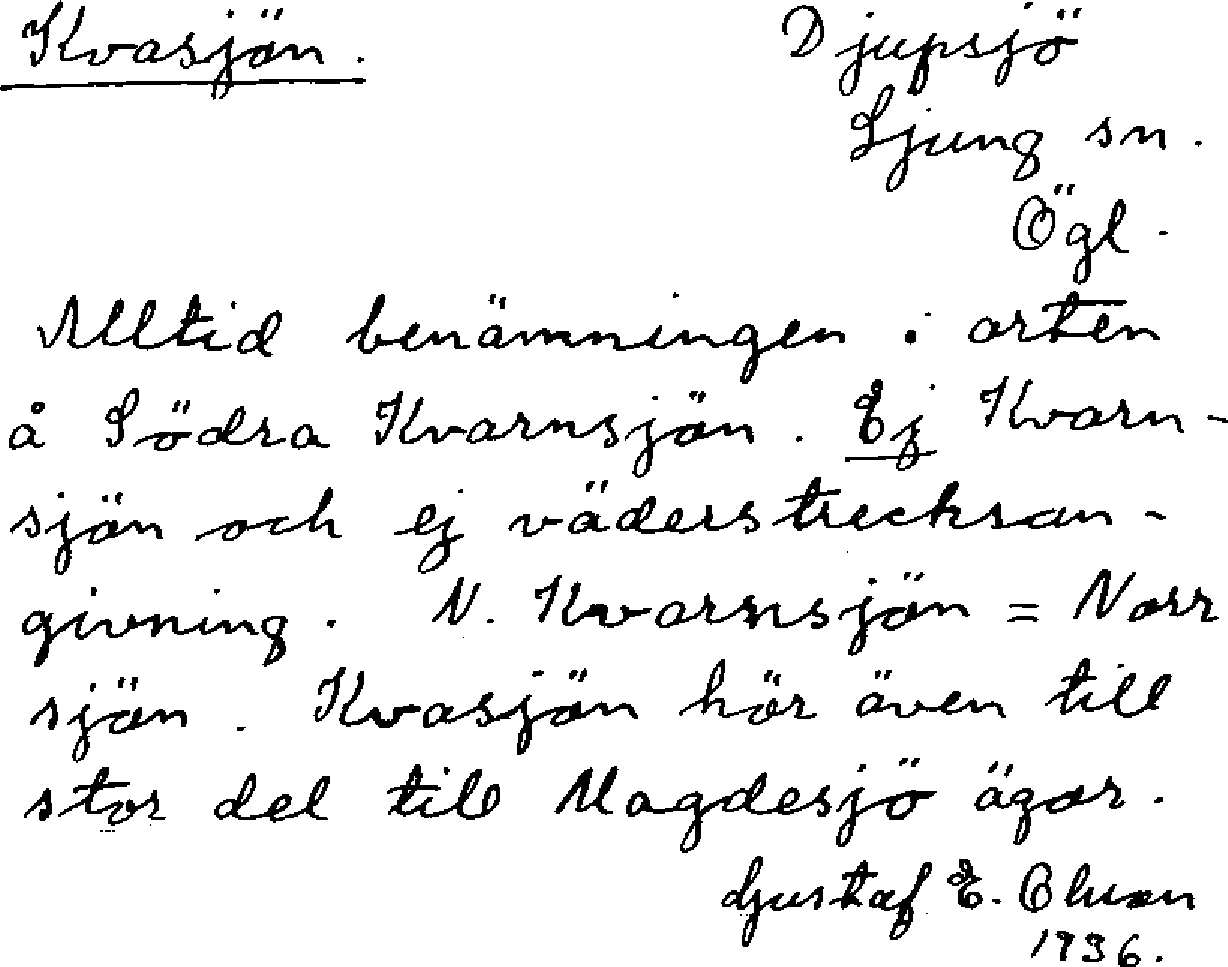 Kvasjön. Djupsjö
Ljung sn.
Ögl.
Alltid benämningen i orten
å Södra Kvarnsjön. Ej Kvarn-
sjön och ej väderstrecksan-
givning. N. Kvarnsjön = Norr
sjön. Kvasjön hör även till
stor del till Magdesjö ägor.
Gustaf E. Olsson
1936.